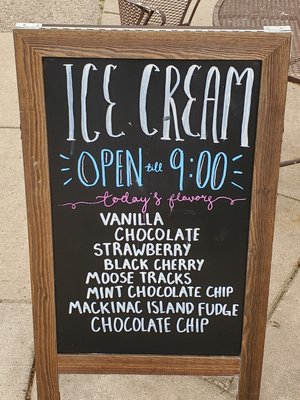 ICE CREAM
OPEN till 9:00
today's flavors
VANILLA
CHOCOLATE
STRAWBERRY
BLACK CHERRY
MOOSE TRACKS
MINT CHOCOLATE CHIP
MACKINAC ISLAND FUDGE
CHOCOLATE CHIP